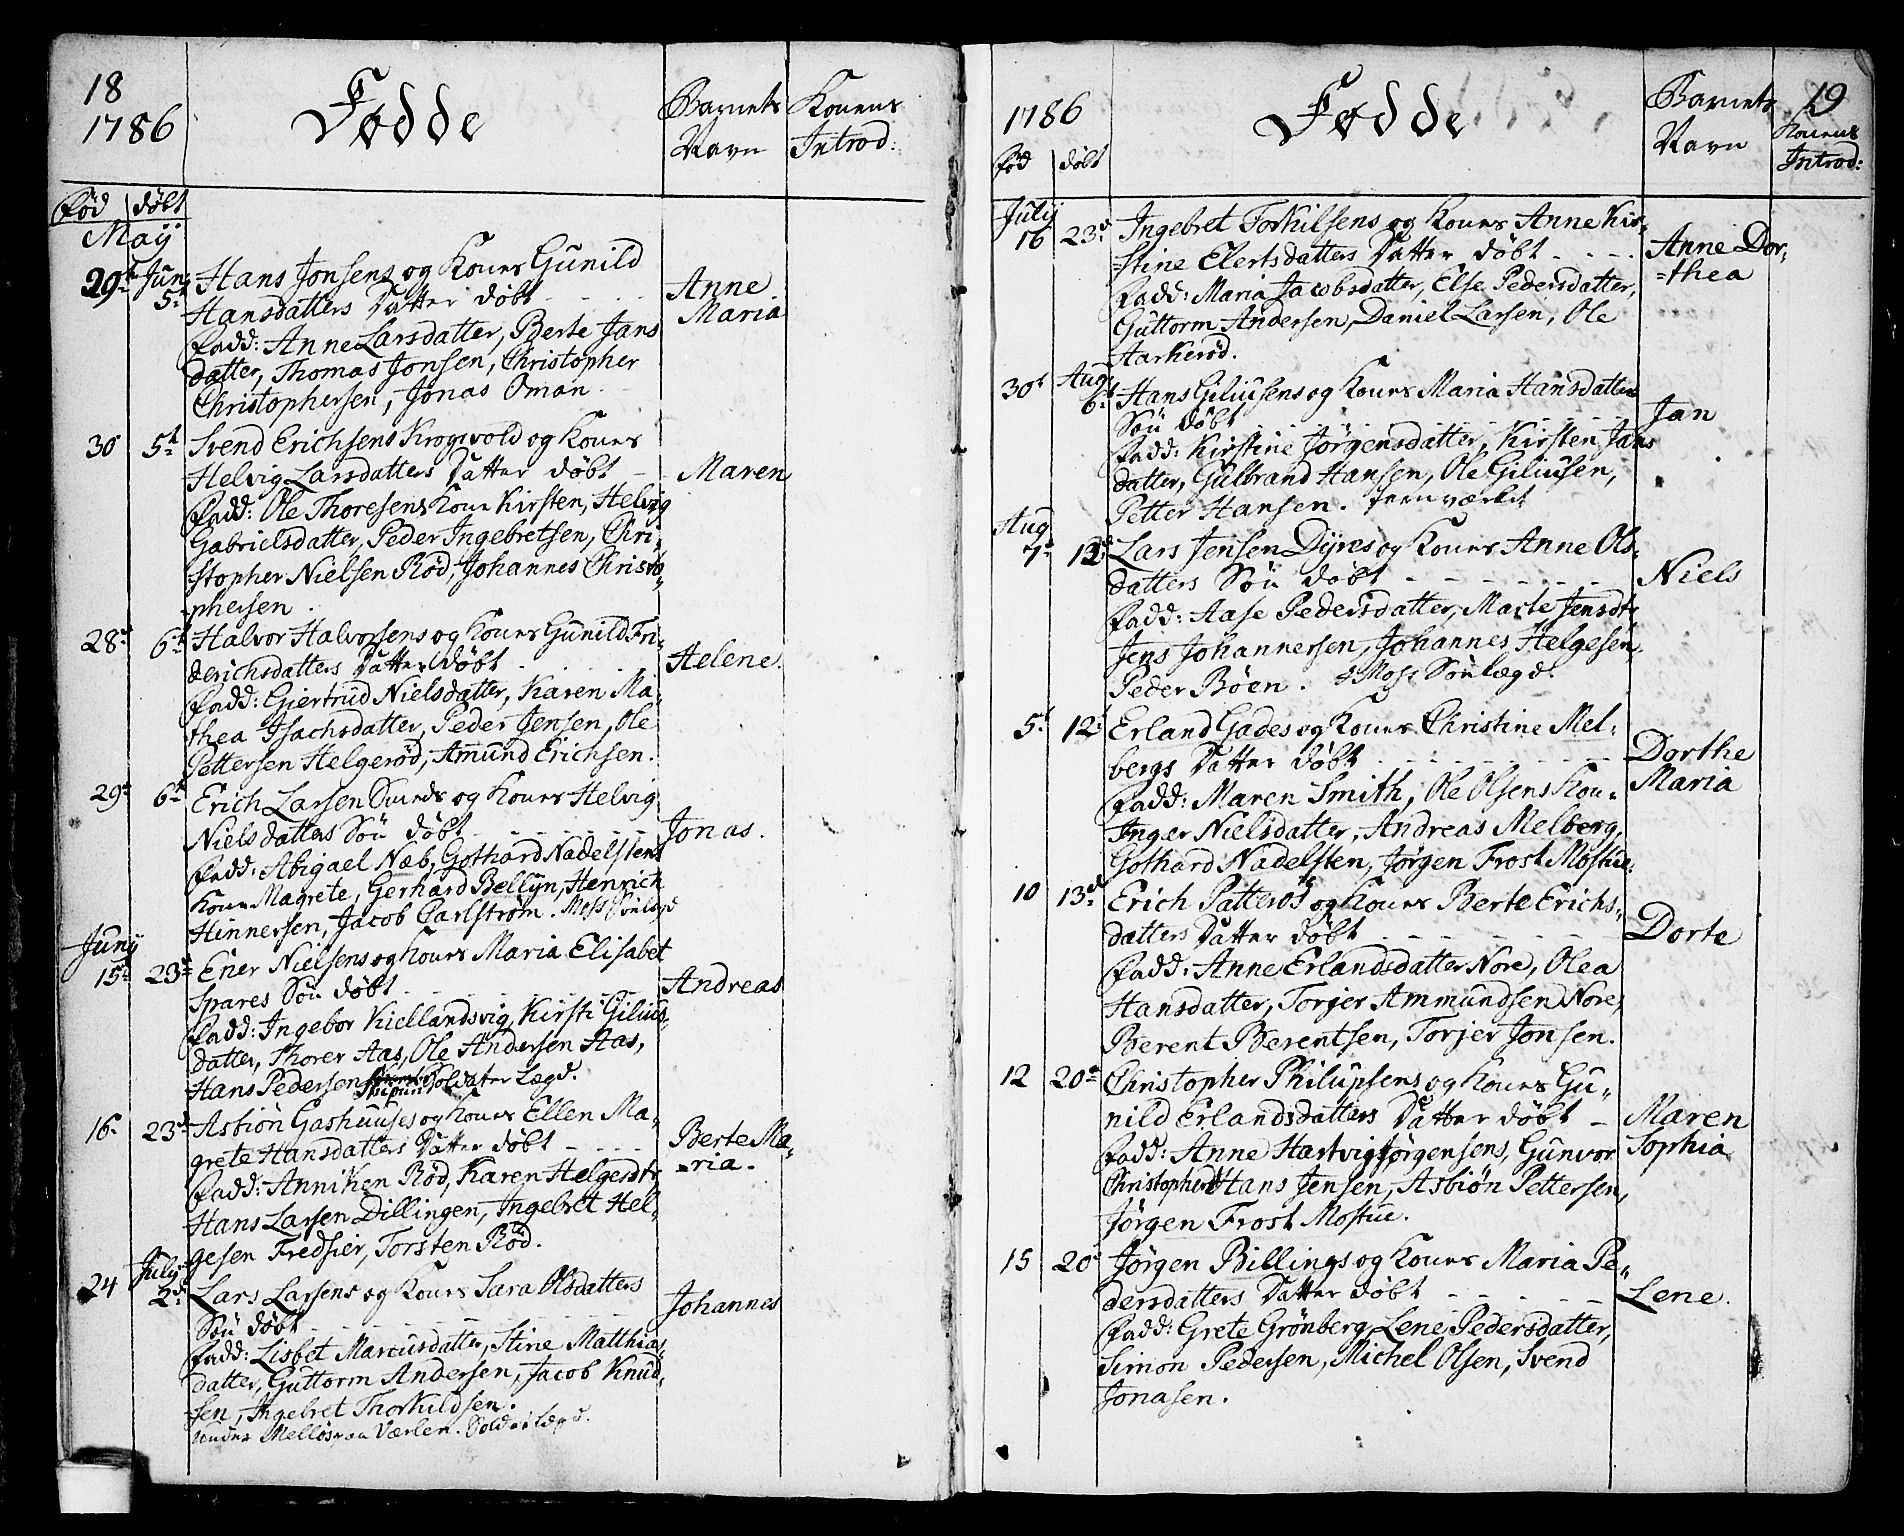 18
1786
Fødde
Barnets Navn
Konens Introd:
fød døbt
Maij
29t Junÿ 5t Hans Jonsens og Kones Gunild
Hansdatters Datter døbt - - - - Anne Maria
fadd: Anne Larsdatter, Berte Jans
datter, Thomas Jonsen, Christopher
Christophersen, Jonas Oman
30 5t Svend Erichsens Krogsvold og Kones
Helvig Larsdatters Datter døbt - Maren
fadd: Ole Thoresens Kone Kirsten, Helvig
Gabrielsdatter, Peder Ingebretsen, Chri-
stopher Nielsen Rød, Johannes Christo-
phersen.
28t 6t Halvor Halvorsens og Kones Gunild Fri-
derichsdatters Datter døbt - - - Helene.
fadd: Giertrud Nielsdatter, Karen Ma-
thea Isachsdatter, Peder Jensen, Ole
Pettersen Helgerød, Amund Erichsen.
29t 6t Erich Larsen Sunds og Kones Helvig
Nielsdatters Søn døbt - - - - - Jonas.
fadd: Abigael Næb, Gothard Nadelstens
Kone Magrete, Gerhard Bellÿn, Henrich
Hinnersen, Jacob Carlstrøm. Moss Sønlægd
Junÿ
15t 23d Ener Nielsens og Kones Maria Elisabet
Spares Søn døbt - - - - - - Andreas
fadd: Ingebor Kiellandsvig, Kirsti Gilius-
datter, Thorer Aas, Ole Andersen Aas,
Hans Pedersen Soldater Lægd.
16t 23d Asbiøn Gashuuses og Kones Ellen Ma-
grete Hansdatters Datter døbt - - - Berte Ma-
=ria.
fadd: Anniken Rød, Karen Helgesdtr
Hans Larsen Dillingen, Ingebret Hel-
gesen Fredsier, Torsten Rød.
24 Julÿ 2d Lars Larsens og Kones Sara Olsdatters
Søn døbt - - - - - - Johannes
fadd: Lisbet Marcusdatter, Stine Matthias
datter, Guttorm Andersen, Jacob Knud-
sen, Ingebret Thorkildsen.
under Melløs paa Værlen. Soldat Lægd.
1786
Fødde
Barnets Navn
19
Konens Introd:
fød døbt
Julÿ
16 23d Ingebret Torkilsens og Kones Anne Kir-
=stine Elertsdatters Datter døbt - - - Anne Dor-
=thea
fadd: Maria Jacobsdatter, Else Pedersdatter,
Guttorm Andersen, Daniel Larsen, Ole
Aarkerød.
30t Aug 6t Hans Giliusens og Kones Maria Hansdatters
Søn døbt - - - - - - Jan
fadd: Kirstine Jørgensdatter, Kirsten Jans
datter, Gulbrand Hansen, Ole Giliusen,
Petter Hansen. Jernværket
Aug
7t 12t Lars Jensen Dÿres og Kones Anne Ols-
datters Søn døbt - - - - - - Niels
fadd: Aase Pedersdatter, Marte Jensdtr
Jens Johannersen, Johannes Helgesen,
Peder Bøen. Moss Sønlægd.
5t 12t Erland Gades og Kones Christine Mel-
bergs Datter døbt - - - - - - Dorthe Maria
fadd: Maren Smith, Ole Olsens Kone
Inger Nielsdatter, Andreas Melberg,
Gothard Nadelsten, Jørgen Frost Mostue.
10 13d Erich Patterøs og Kones Berte Erichs-
datters Datter døbt - - - - - - Dorte
fadd: Anne Erlandsdatter Nore, Olea
Hansdatter, Torjer Ammundsen Nore,
Berent Berentsen, Torjer Jonsen.
12 20d Christopher Philupsens og Kones Gu-
nild Erlandsdatters Datter døbt - Maren Sophia
fadd: Anne Hartvig Jørgensens, Gunvor
Christophersd Hans Jensen, Asbiøn Pettersen,
Jørgen Frost Mostue.
15 20t Jørgen Billings og Kones Maria Pe-
dersdatters Datter døbt - - - - - Lene.
fadd: Grete Grønberg, Lene Pedersdatter,
Simon Pedersen, Michel Olsen, Svend
Jonasen.